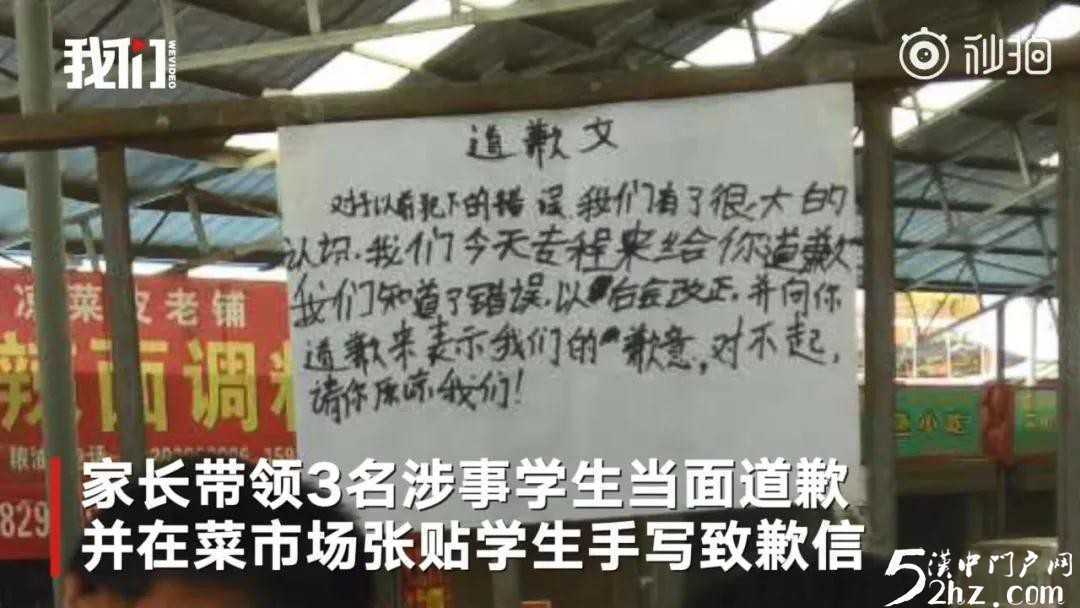 我们
WEVIDEO
秒拍
道歉文
对于以前犯下的错误,我们有了很大的
认识.我们今天专程来给你道歉
我们知道了错误,以后会改正,并向你
道歉来表示我们的歉意,对不起,
请你原谅我们!
凉菜皮老铺
辣面调料
粮油
829
小吃
家长带领3名涉事学生当面道歉
并在菜市场张贴学生手写致歉信
52hz.com
汉中门户网